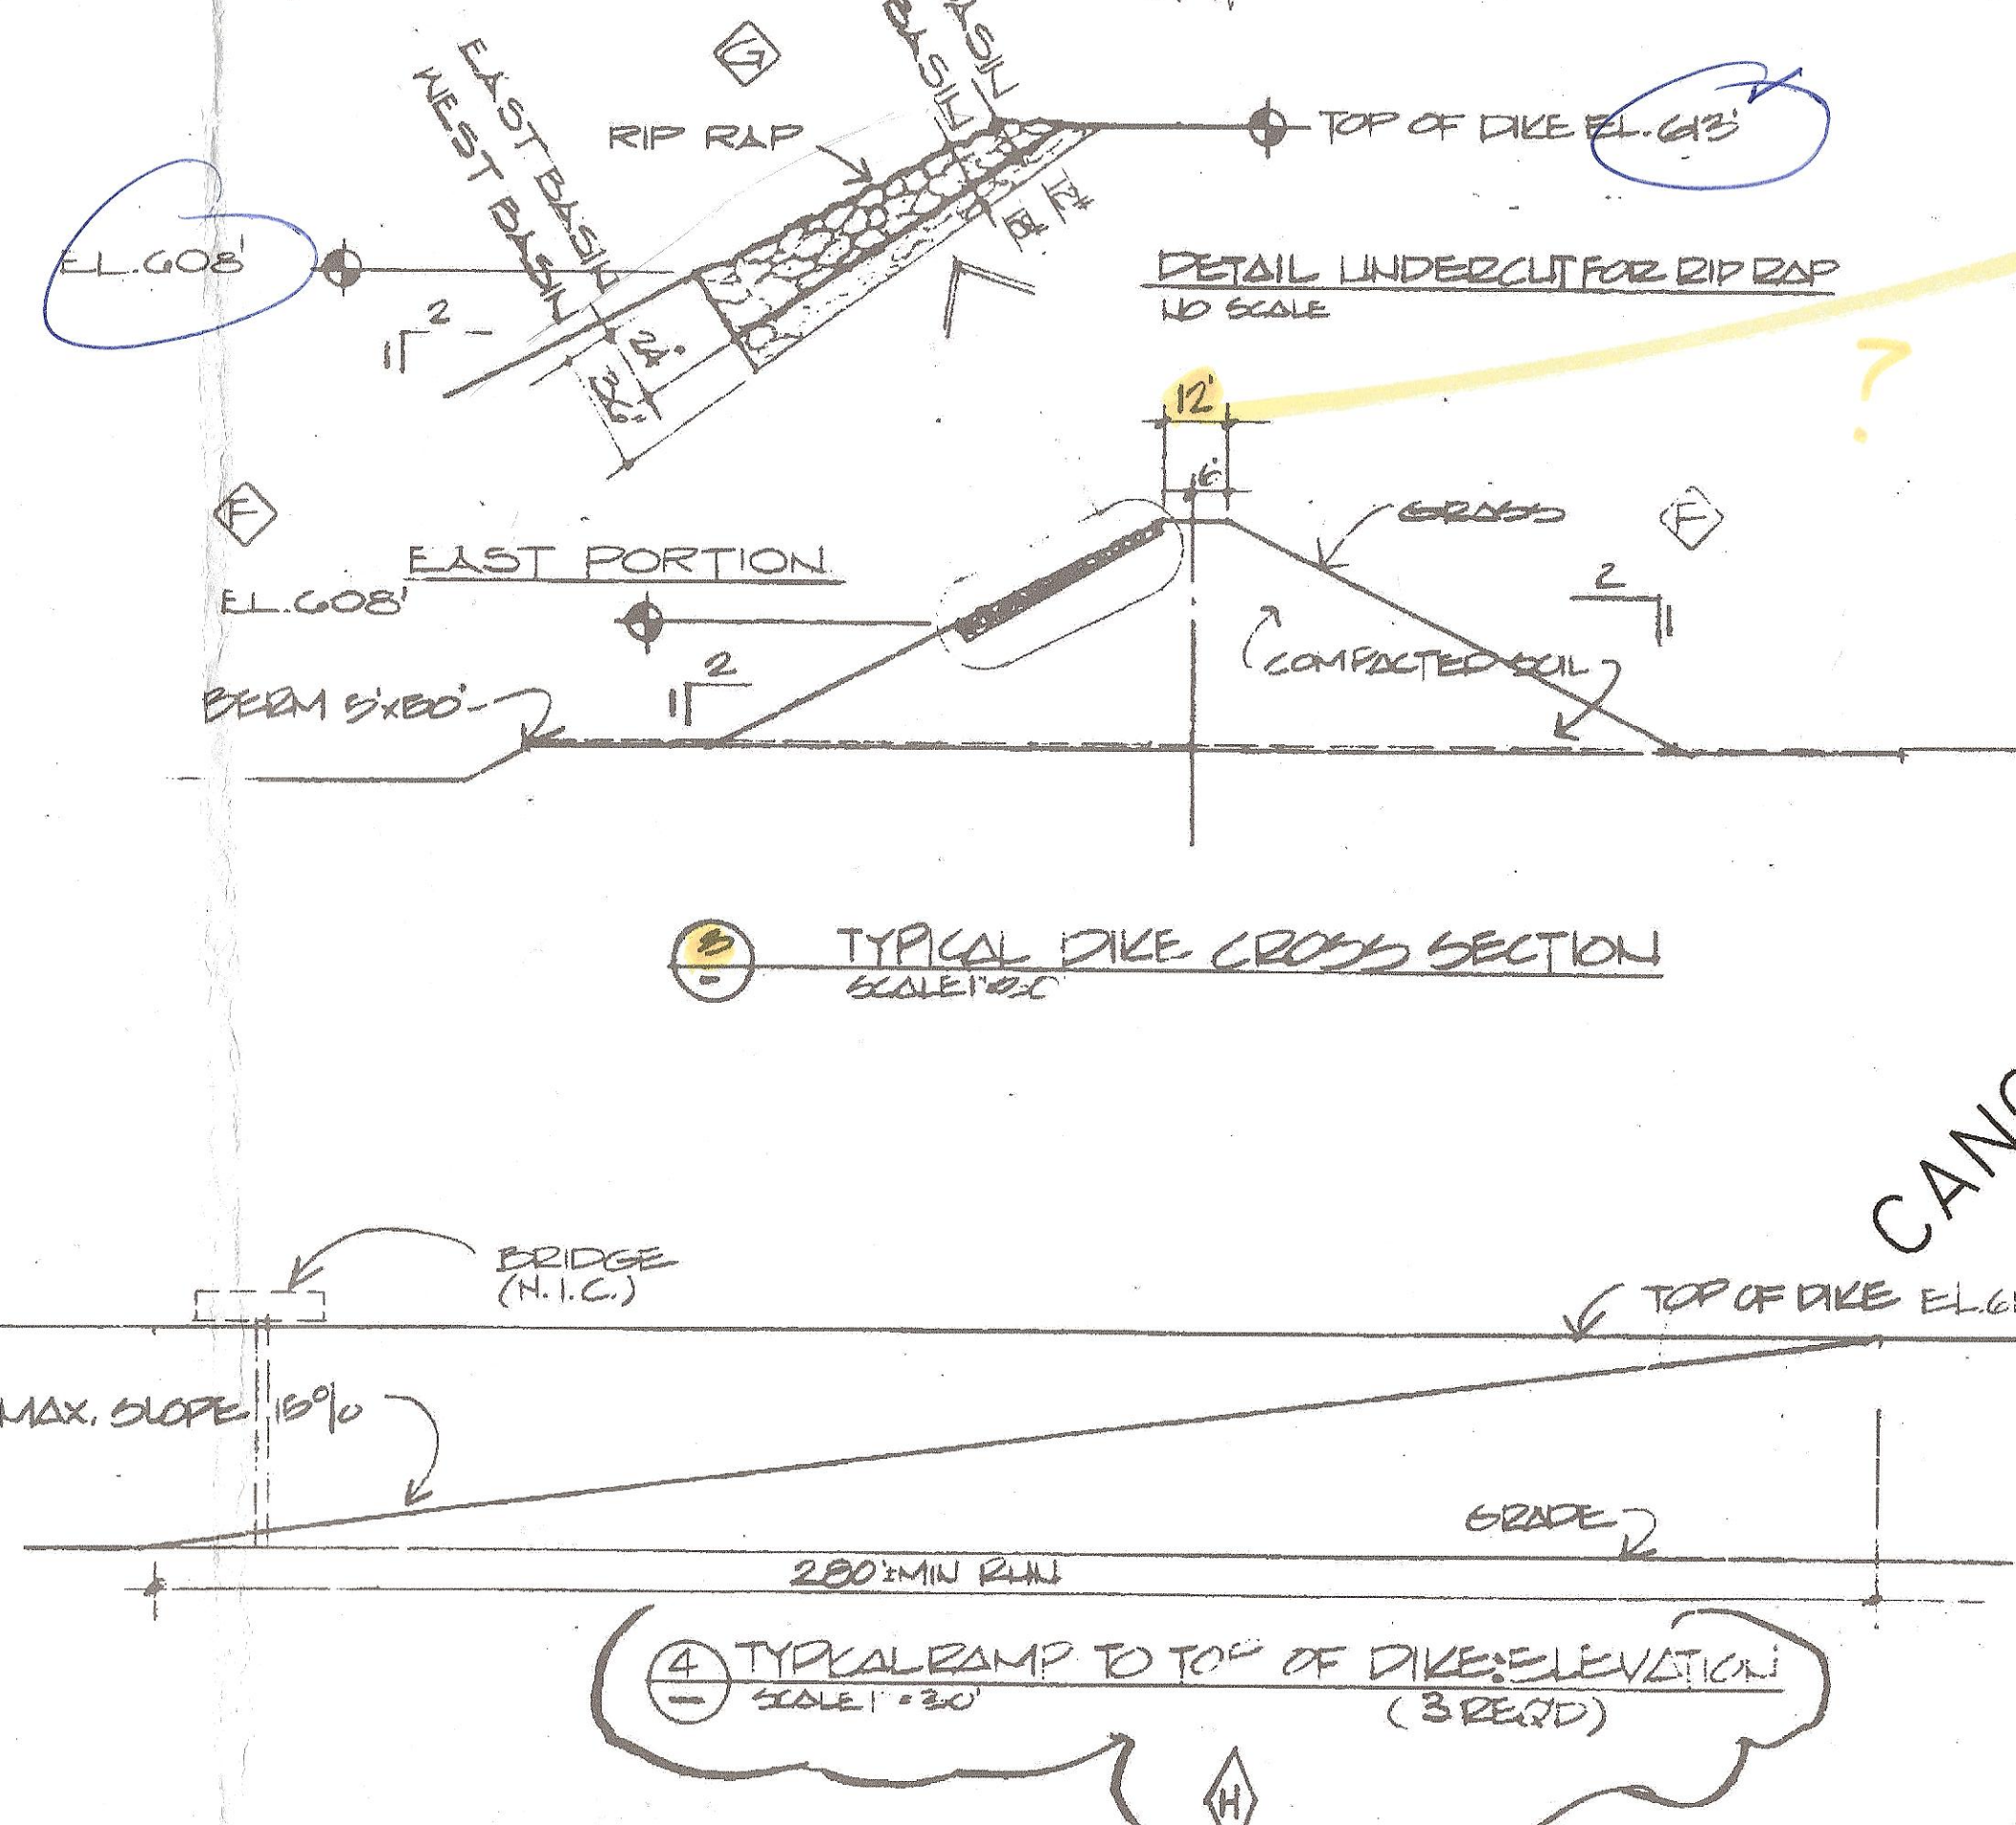 G
EAST BASIN
WEST BASIN
RIP RAP
TOP OF DIKE EL. 613'
EL. 608'
1
2
24"
36"
DETAIL UNDERCUT FOR RIP RAP
NO SCALE
?
12'
6'
F
GRASS
F
EAST PORTION
EL. 608'
2
1
COMPACTED SOIL
2
1
BERM 5'x50'
3
-
TYPICAL DIKE CROSS SECTION
BRIDGE
(N.I.C.)
TOP OF DIKE
MAX. SLOPE 15%
GRADE
280'± MIN RUN
4
-
TYPICAL RAMP TO TOP OF DIKE: ELEVATION
SCALE 1" = 20'
(3 REQ'D)
H